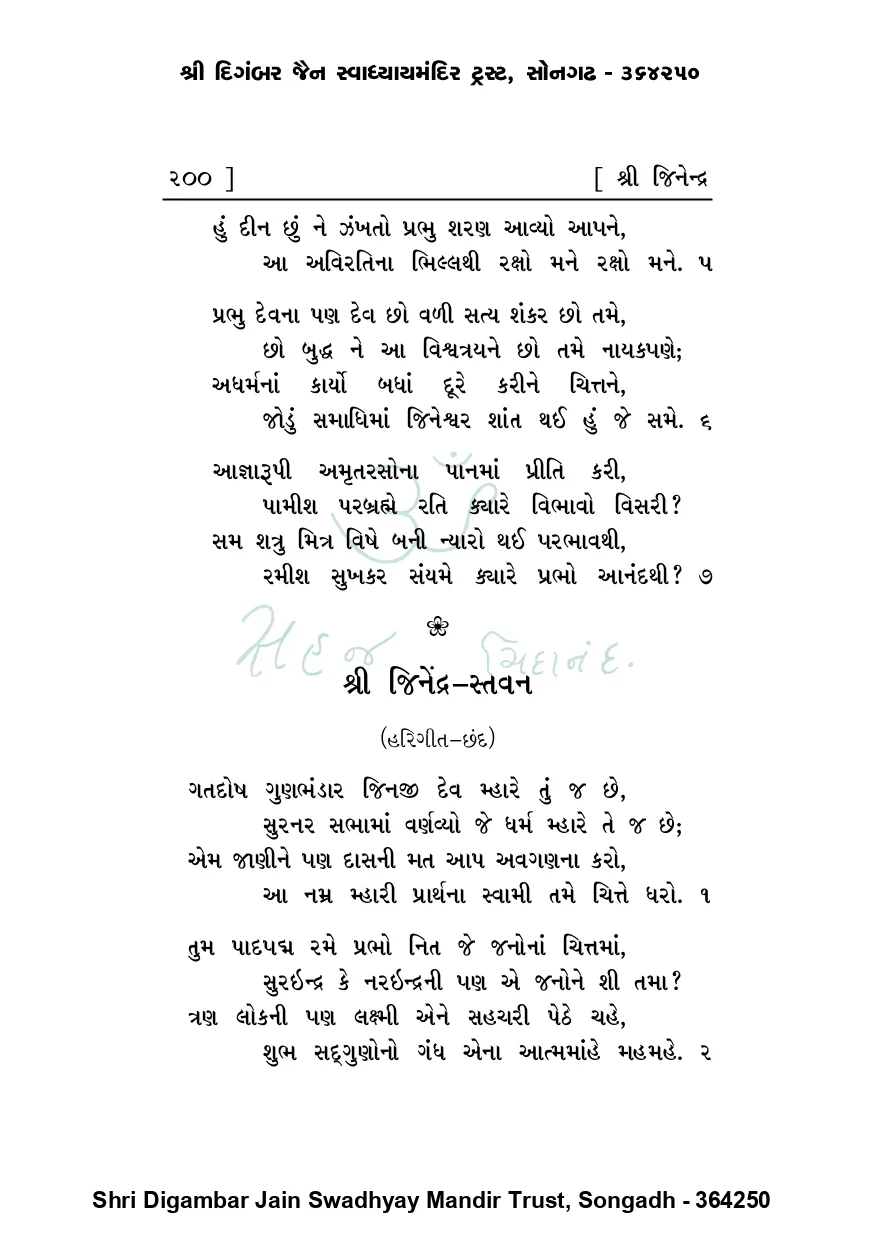 શ્રી દિગંબર જૈન સ્વાધ્યાયમંદિર ટ્રસ્ટ, સોનગઢ - ૩૬૪૨૫૦
૨૦૦ ] [ શ્રી જિનેન્દ્ર
હું દીન છું ને ઝંખતો પ્રભુ શરણ આવ્યો આપને,
આ અવિરતિના ભિલ્લથી રક્ષો મને રક્ષો મને. ૫
પ્રભુ દેવના પણ દેવ છો વળી સત્ય શંકર છો તમે,
છો બુદ્ધ ને આ વિશ્વત્રયને છો તમે નાયકપણે;
અધર્મનાં કાર્યો બધાં દૂરે કરીને ચિત્તને,
જોડું સમાધિમાં જિનેશ્વર શાંત થઈ હું જે સમે. ૬
આજ્ઞારૂપી અમૃતરસોના પાનમાં પ્રીતિ કરી,
પામીશ પરબ્રહ્મે રતિ ક્યારે વિભાવો વિસરી?
સમ શત્રુ મિત્ર વિષે બની ન્યારો થઈ પરભાવથી,
રમીશ સુખકર સંયમે ક્યારે પ્રભો આનંદથી? ૭
ૐ
સહજ ચિદાનંદ.
શ્રી જિનેંદ્ર–સ્તવન
(હરિગીત–છંદ)
ગતદોષ ગુણભંડાર જિનજી દેવ મ્હારે તું જ છે,
સુરનર સભામાં વર્ણવ્યો જે ધર્મ મ્હારે તે જ છે;
એમ જાણીને પણ દાસની મત આપ અવગણના કરો,
આ નમ્ર મ્હારી પ્રાર્થના સ્વામી તમે ચિત્તે ધરો. ૧
તુમ પાદપદ્મ રમે પ્રભો નિત જે જનોનાં ચિત્તમાં,
સુરઇન્દ્ર કે નરઇન્દ્રની પણ એ જનોને શી તમા?
ત્રણ લોકની પણ લક્ષ્મી એને સહચરી પેઠે ચહે,
શુભ સદ્‌ગુણોનો ગંધ એના આત્મમાંહે મહમહે. ૨
Shri Digambar Jain Swadhyay Mandir Trust, Songadh - 364250